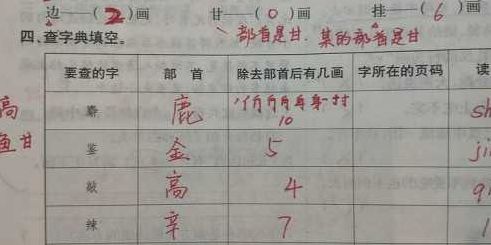 边——( 2 )画 甘——( 0 )画 挂——( 6 )画
四、查字典填空。 部首是甘. 某的部首是甘
要查的字 部 首 除去部首后有几画 字所在的页码 读
高 麝 鹿 10 sh
鱼甘 鉴 金 5 ji
敲 高 4 q
辣 辛 7 l